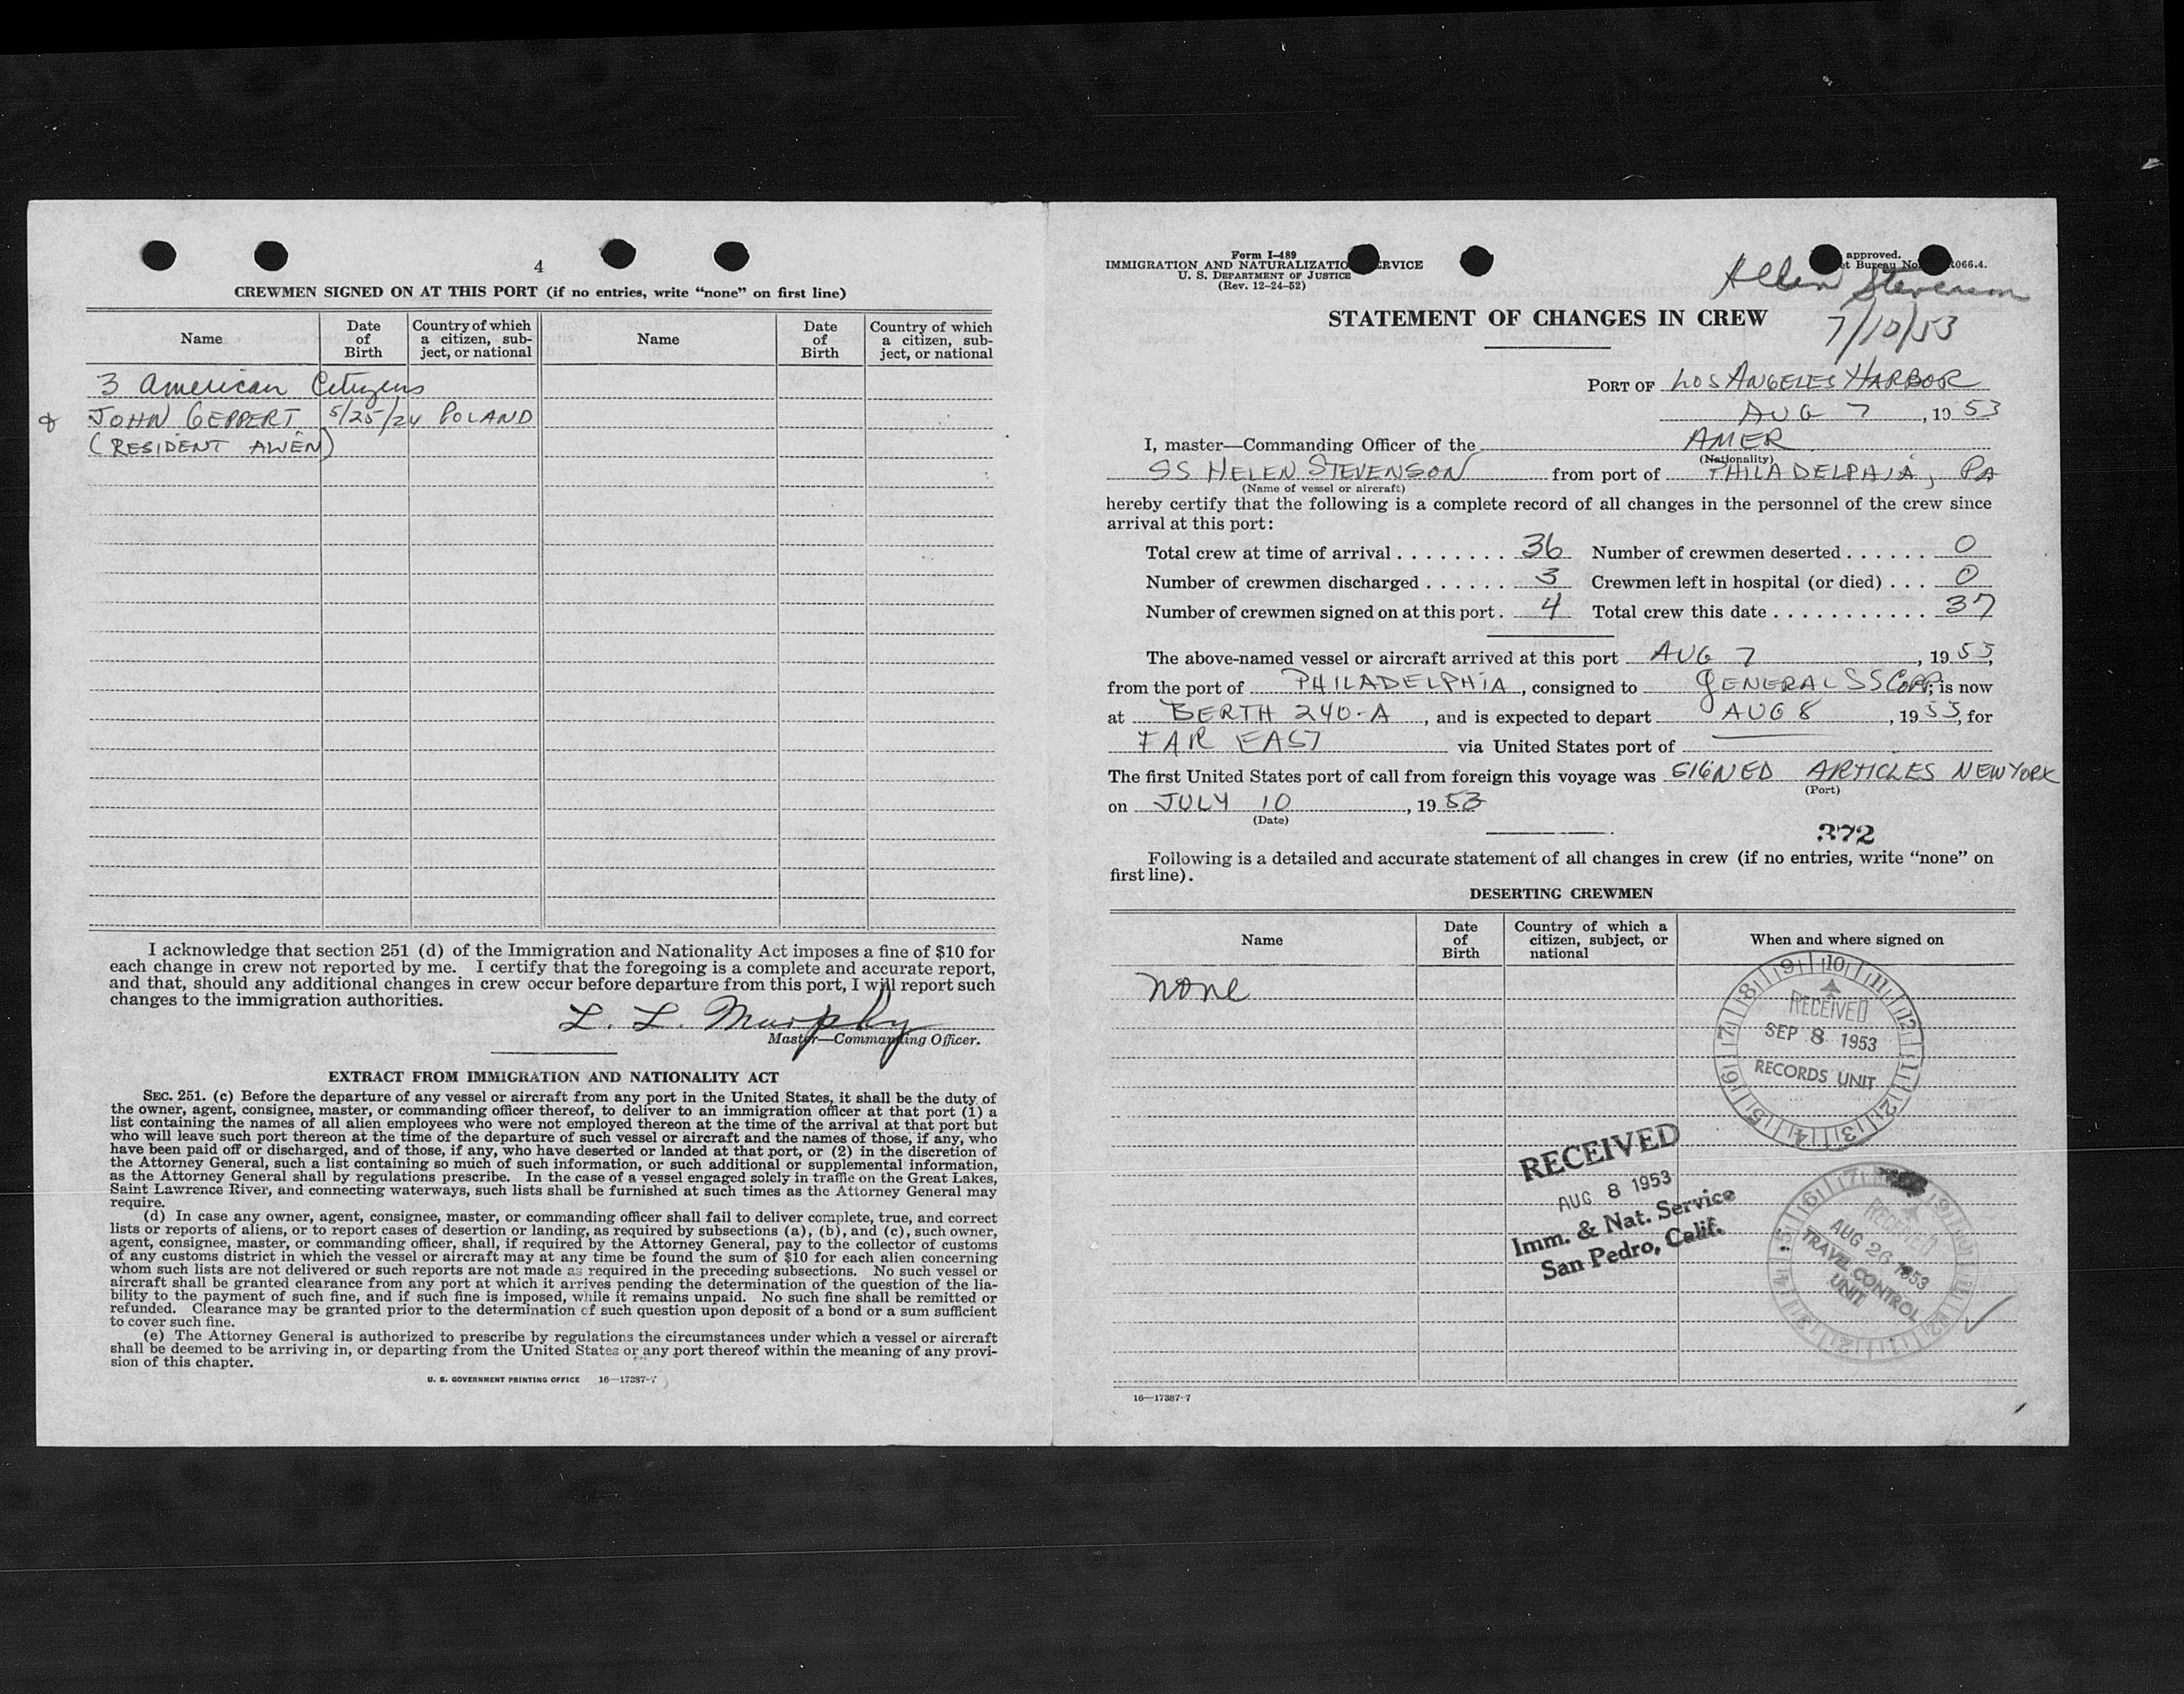 4
CREWMEN SIGNED ON AT THIS PORT (if no entries, write "none" on first line)
Name
Date of Birth
Country of which a citizen, subject, or national
Name
Date of Birth
Country of which a citizen, subject, or national
3 American Citizens
& JOHN GEPPERT 5/25/24 POLAND
(RESIDENT ALIEN)
I acknowledge that section 251 (d) of the Immigration and Nationality Act imposes a fine of $10 for
each change in crew not reported by me. I certify that the foregoing is a complete and accurate report,
and that, should any additional changes in crew occur before departure from this port, I will report such
changes to the immigration authorities.
L. L. Murphy
Master—Commanding Officer.
EXTRACT FROM IMMIGRATION AND NATIONALITY ACT
SEC. 251. (c) Before the departure of any vessel or aircraft from any port in the United States, it shall be the duty of
the owner, agent, consignee, master, or commanding officer thereof, to deliver to an immigration officer at that port (1) a
list containing the names of all alien employees who were not employed thereon at the time of the arrival at that port but
who will leave such port thereon at the time of the departure of such vessel or aircraft and the names of those, if any, who
have been paid off or discharged, and of those, if any, who have deserted or landed at that port, or (2) in the discretion of
the Attorney General, such a list containing so much of such information, or such additional or supplemental information,
as the Attorney General shall by regulations prescribe. In the case of a vessel engaged solely in traffic on the Great Lakes,
Saint Lawrence River, and connecting waterways, such lists shall be furnished at such times as the Attorney General may
require.
(d) In case any owner, agent, consignee, master, or commanding officer shall fail to deliver complete, true, and correct
lists or reports of aliens, or to report cases of desertion or landing, as required by subsections (a), (b), and (c), such owner,
agent, consignee, master, or commanding officer, shall, if required by the Attorney General, pay to the collector of customs
of any customs district in which the vessel or aircraft may at any time be found the sum of $10 for each alien concerning
whom such lists are not delivered or such reports are not made as required in the preceding subsections. No such vessel or
aircraft shall be granted clearance from any port at which it arrives pending the determination of the question of the lia-
bility to the payment of such fine, and if such fine is imposed, while it remains unpaid. No such fine shall be remitted or
refunded. Clearance may be granted prior to the determination of such question upon deposit of a bond or a sum sufficient
to cover such fine.
(e) The Attorney General is authorized to prescribe by regulations the circumstances under which a vessel or aircraft
shall be deemed to be arriving in, or departing from the United States or any port thereof within the meaning of any provi-
sion of this chapter.
U. S. GOVERNMENT PRINTING OFFICE 16—17387-7
Form I-489
IMMIGRATION AND NATURALIZATIO RVICE
U. S. DEPARTMENT OF JUSTICE
(Rev. 12-24-52)
approved.
et Bureau No. 066.4.
Allen Stevenson
7/10/53
STATEMENT OF CHANGES IN CREW
PORT OF LOS ANGELES HARBOR
AUG 7, 19 53
I, master—Commanding Officer of the AMER
(Nationality)
SS HELEN STEVENSON from port of PHILADELPHIA, PA
(Name of vessel or aircraft)
hereby certify that the following is a complete record of all changes in the personnel of the crew since
arrival at this port:
Total crew at time of arrival . . . . . . . . 36 Number of crewmen deserted . . . . . . 0
Number of crewmen discharged . . . . . . 3 Crewmen left in hospital (or died) . . . 0
Number of crewmen signed on at this port . 4 Total crew this date . . . . . . . . . . . 37
The above-named vessel or aircraft arrived at this port AUG 7, 19 53,
from the port of PHILADELPHIA, consigned to GENERAL SS CORP; is now
at BERTH 240-A, and is expected to depart AUG 8, 19 53, for
FAR EAST via United States port of
The first United States port of call from foreign this voyage was SIGNED ARTICLES NEW YORK
(Port)
on JULY 10, 19 53
(Date)
372
Following is a detailed and accurate statement of all changes in crew (if no entries, write "none" on
first line).
DESERTING CREWMEN
Name
Date of Birth
Country of which a citizen, subject, or national
When and where signed on
none
9 10 11 12 1 2 3 4 5 6 7 8
RECEIVED
SEP 8 1953
RECORDS UNIT
RECEIVED
AUG 8 1953
Imm. & Nat. Service
San Pedro, Calif.
RECEIVED
AUG 26 1953
TRAVEL CONTROL
UNIT
16—17387-7